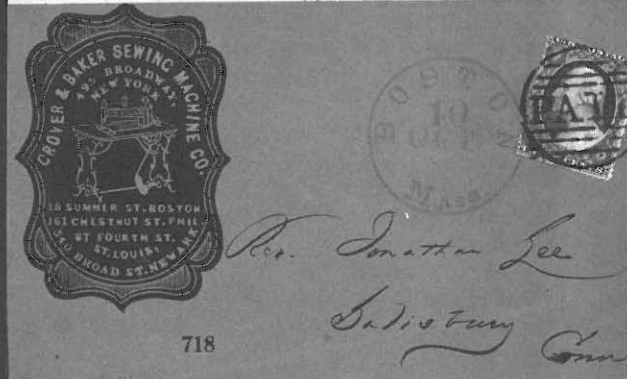 GROVER & BAKER SEWING MACHINE CO.
495 BROADWAY,
NEW YORK
18 SUMMER ST. BOSTON
161 CHESTNUT ST. PHIL
87 FOURTH ST.
ST. LOUIS.
340 BROAD ST. NEWARK
BOSTON
10
OCT
Mass.
PAID
Rev. Jonathan Lee
Salisbury
Conn
718